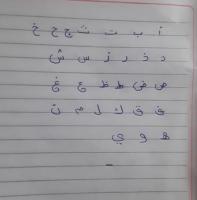 أ ب ت ث ج ح خ
د ذ ر ز س ش
ص ض ط ظ ع غ
ف ق ك ل م ن
ه و ي